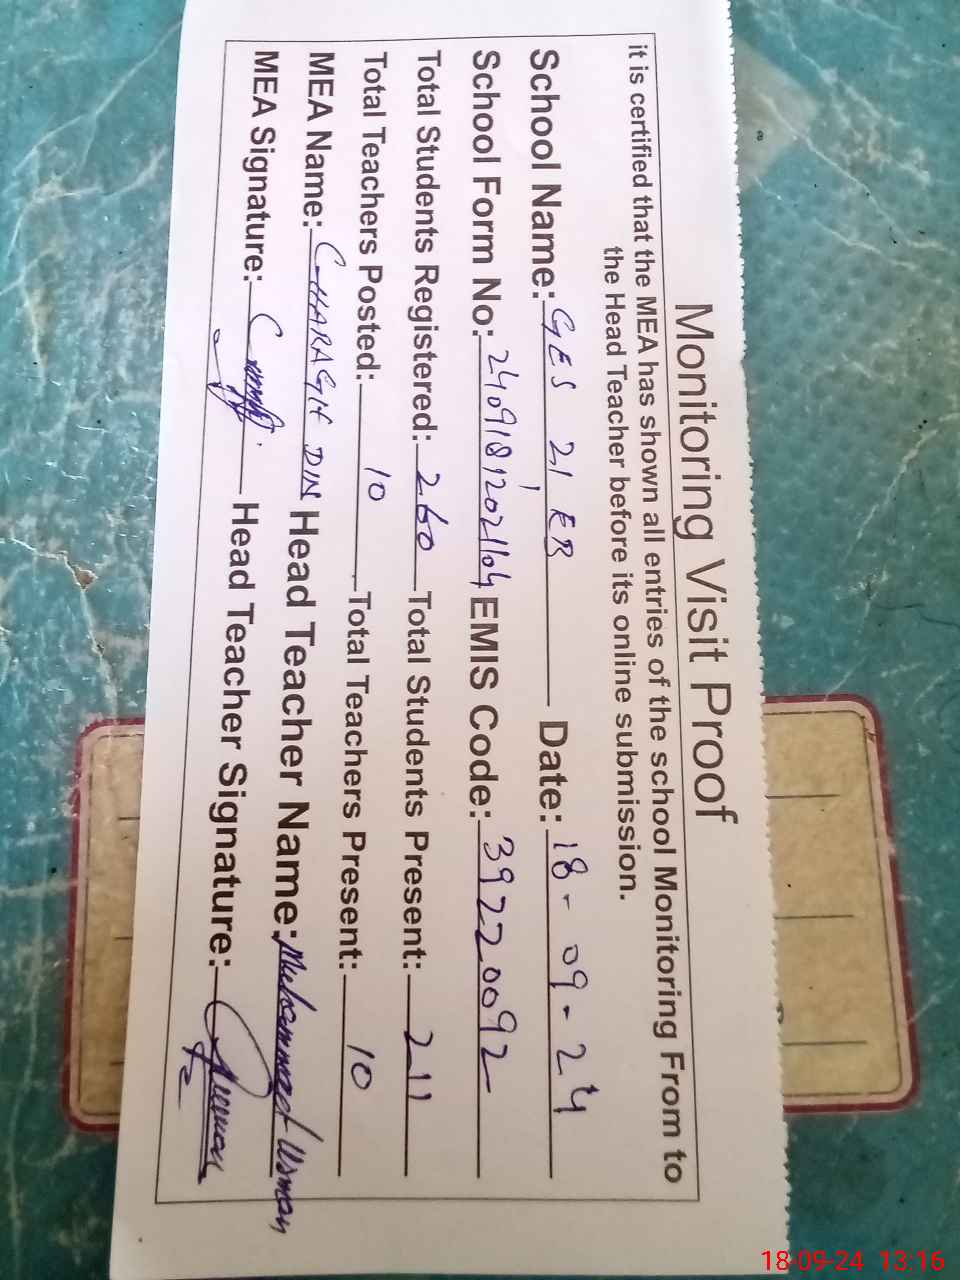 Monitoring Visit Proof
it is certified that the MEA has shown all entries of the school Monitoring From to
the Head Teacher before its online submission.
School Name: GES 21 ER Date: 18-09-24
School Form No: EMIS Code: 39220092
Total Students Registered: 260 Total Students Present: 211
Total Teachers Posted: 10 Total Teachers Present: 10
MEA Name: CHARAGH DIN Head Teacher Name: Muhammad Usman
MEA Signature: Head Teacher Signature:
18-09-24 13:16